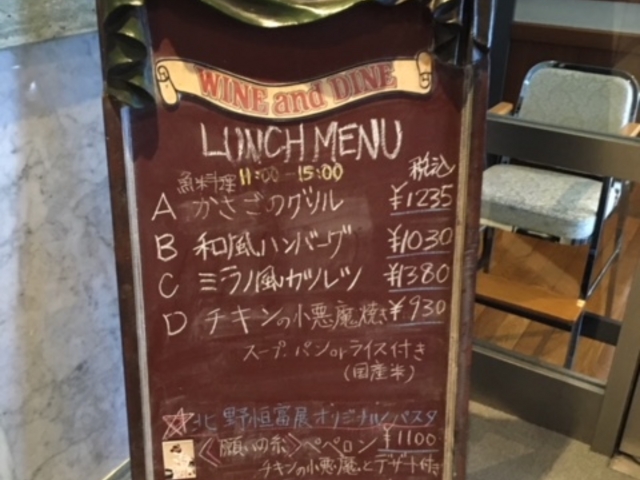 WINE and DINE
LUNCH MENU
11:00-15:00
魚料理 税込
A かさごのグリル ¥1235
B 和風ハンバーグ ¥1030
C ミラノ風カツレツ ¥1380
D チキンの小悪魔焼き ¥930
スープ. パンorライス付き
(国産米)
☆北野恒富展オリジナルパスタ
《願いの糸》ペペロン ¥1100
チキンの小悪魔とデザート付き